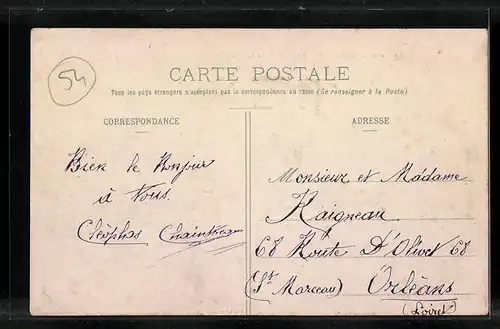 54
CARTE POSTALE
Tous les pays étrangers n'acceptant pas la correspondance au recto (Se renseigner à la Poste)
CORRESPONDANCE
ADRESSE
Bien le Bonjour
à Vous.
Cléophas Chaintreau
Monsieur et Madame
Raigneau
68 Route D'Olivet 68
(St Marceau) Orléans
(Loiret)